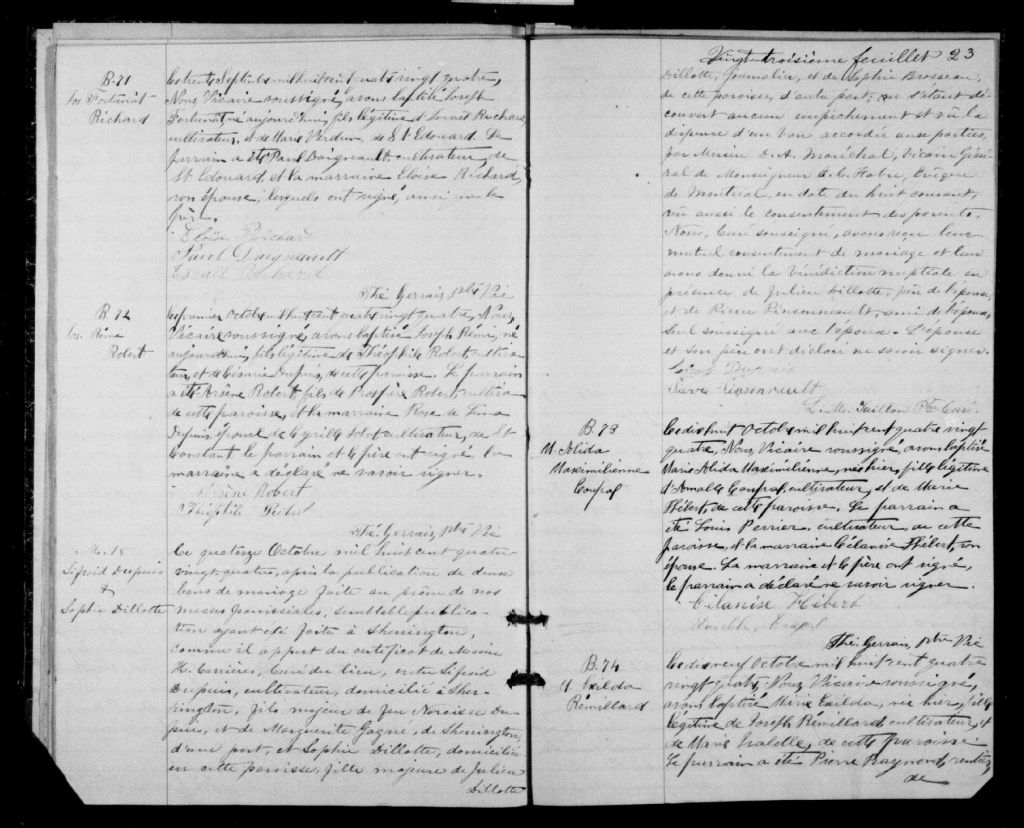 B. 71
Jos Fortunat
Richard
Le trente Septembre mil huit cent quatre vingt quatre,
Nous, Vicaire soussigné, avons baptisé Joseph
Fortunat, né aujourd'hui, fils légitime d'Israël Richard,
cultivateur, et de Marie Verdun, de St Edouard. Le
parrain a été Paul Daigneault, cultivateur, de
St Edouard, et la marraine Eloïse Richard,
son épouse, lesquels ont signé, ainsi que le
père.
Eloïse Richard
Paul Daigneault
Esraël Richard
Thé. Gervais, ptre Vic
B. 72
Jos. Rémi
Robert
Le premier Octobre mil huit cent quatre vingt quatre, Nous,
Vicaire soussigné, avons baptisé Joseph Rémi, né
aujourd'hui, fils légitime de Théophile Robert, cultiva-
teur, et de Césarie Dupuis, de cette paroisse. Le parrain
a été Arsène Robert, fils de Prospère Robert, cultivateur
de cette paroisse, et la marraine Rose de Lima
Dupuis, épouse de Cyrille cultivateur, de St
Constant. Le parrain et le père ont signé, la
marraine a déclaré ne savoir signer.
Arsène Robert
Théophile Robert
Thé. Gervais, ptre Vic
M. 18
Sifroid Dupuis
&
Sophie Dillotte
Le quatorze Octobre mil huit cent quatre
vingt quatre, après la publication de deux
bans de mariage faite au prône de nos
messes paroissiales, semblable publica-
tion ayant été faite à Sherrington,
comme il appert du certificat de Messire
H. Carrières, Curé du lieu, entre Sifroid
Dupuis, cultivateur, domicilié à Sher-
rington, fils majeur de feu Narcisse Du-
puis, et de Marguerite Gagné, de Sherrington,
d'une part, et Sophie Dillotte, domiciliée
en cette paroisse, fille majeure de Julien
Dillotte
Vingt-troisième feuillet 23
Dillotte, Journalier, et de Sophie Brosseau,
de cette paroisse, d'autre part, ne s'étant dé-
couvert aucun empêchement et vû la
dispense d'un ban accordée aux parties,
par Messire D. A. Maréchal, Vicaire Géné-
ral de Monseigneur E. C. Fabre, Evêque
de Montréal, en date du huit courant,
vû aussi le consentement des parents,
Nous, Curé soussigné, avons reçu leur
mutuel consentement de mariage et leur
avons donné la bénédiction nuptiale en
présence de Julien Dillotte, père de l'épouse,
et de Pierre Pinsonnault, ami de l'époux,
seul soussigné avec l'époux. L'épouse
et son père ont déclaré ne savoir signer.
Dupuis
Pierre Pinsonnault
L. M. Taillon Ptre Curé.
B. 73
M. Alida
Maximilienne
Coupal
Le dix huit Octobre mil huit cent quatre vingt
quatre, Nous, Vicaire soussigné, avons baptisé
Marie Alida Maximilienne, née hier, fille légitime
d'Amable Coupal, cultivateur, et de Marie
Hébert, de cette paroisse. Le parrain a
été Louis Perrier, cultivateur, de cette
paroisse, et la marraine Célanise Hébert, son
épouse. La marraine et le père ont signé,
le parrain a déclaré ne savoir signer.
Célanise Hébert
Amable Coupal
Thé. Gervais, ptre Vic
B. 74
M. Exilda
Rémillard
Le dix neuf Octobre mil huit cent quatre
vingt quatre, Nous, Vicaire soussigné,
avons baptisé Marie Exilda, née hier, fille
légitime de Joseph Rémillard, cultivateur, et
de Marie de cette paroisse
Le parrain a été Pierre Raymond, rentier,
de